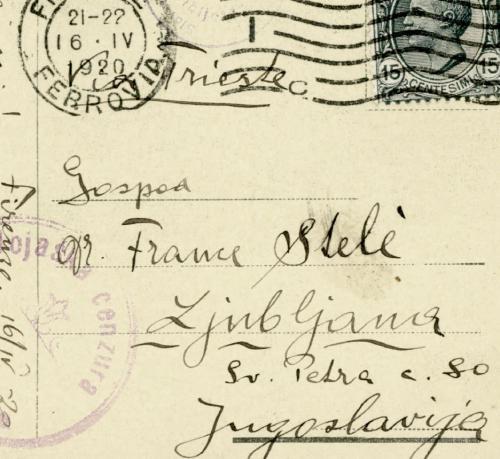 21-22
16·IV
1920
FERROVIA
Via Trieste
15 CENTESIMI 15
Gospod
dr. France Stelè
Ljubljana
Sv. Petra c. 80
Jugoslavija
Firenze 16/IV 20
cenzura